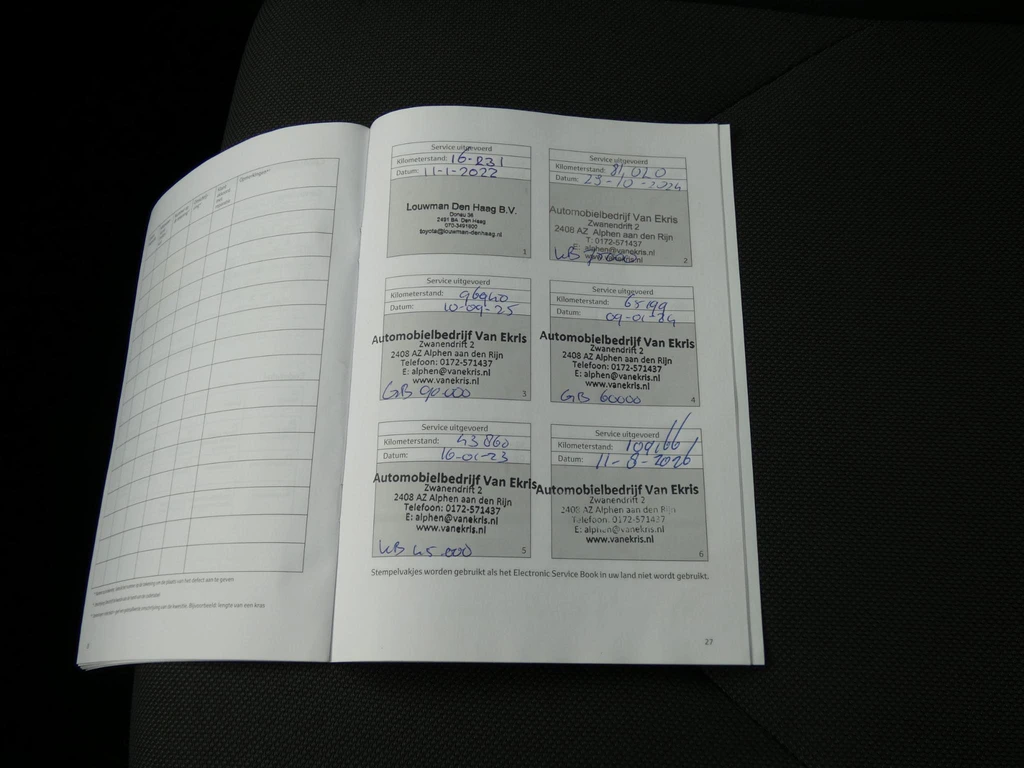 Opmerkingen
Service uitgevoerd
Kilometerstand: 16-231
Datum: 11-1-2022
Louwman Den Haag B.V.
Donau 36
2491 BA Den Haag
070-3491800
toyota@louwman-denhaag.nl
1
Service uitgevoerd
Kilometerstand: 81,020
Datum: 23-10-2024
Automobielbedrijf Van Ekris
Zwanendrift 2
2408 AZ Alphen aan den Rijn
T: 0172-571437
E: alphen@vanekris.nl
www.vanekris.nl
2
Service uitgevoerd
Kilometerstand: 96940
Datum: 10-09-25
Automobielbedrijf Van Ekris
Zwanendrift 2
2408 AZ Alphen aan den Rijn
Telefoon: 0172-571437
E: alphen@vanekris.nl
www.vanekris.nl
GB 90.000
3
Service uitgevoerd
Kilometerstand: 65199
Datum: 09-01-24
Automobielbedrijf Van Ekris
Zwanendrift 2
2408 AZ Alphen aan den Rijn
Telefoon: 0172-571437
E: alphen@vanekris.nl
www.vanekris.nl
GB 60000
4
Service uitgevoerd
Kilometerstand: 43860
Datum: 16-01-23
Automobielbedrijf Van Ekris
Zwanendrift 2
2408 AZ Alphen aan den Rijn
Telefoon: 0172-571437
E: alphen@vanekris.nl
www.vanekris.nl
KB 45.000
5
Service uitgevoerd
Kilometerstand: 109,166
Datum: 11-8-2026
Automobielbedrijf Van Ekris
Zwanendrift 2
2408 AZ Alphen aan den Rijn
Telefoon: 0172-571437
E: alphen@vanekris.nl
www.vanekris.nl
6
Stempelvakjes worden gebruikt als het Electronic Service Book in uw land niet wordt gebruikt.
27